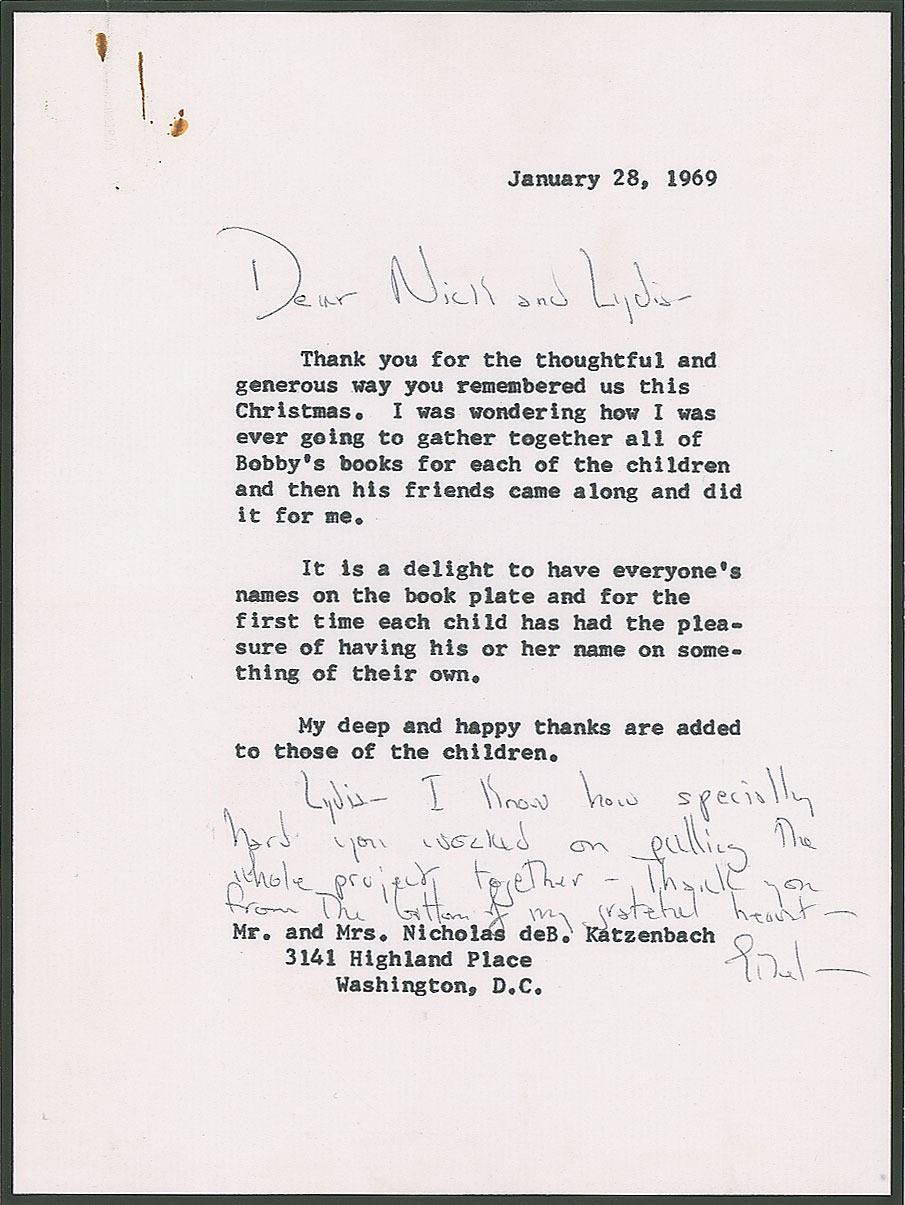 January 28, 1969
Dear Nick and Lydia—
Thank you for the thoughtful and
generous way you remembered us this
Christmas. I was wondering how I was
ever going to gather together all of
Bobby's books for each of the children
and then his friends came along and did
it for me.
It is a delight to have everyone's
names on the book plate and for the
first time each child has had the plea-
sure of having his or her name on some-
thing of their own.
My deep and happy thanks are added
to those of the children.
Lydia— I know how specially
hard you worked on pulling the
whole project together — Thank you
from the bottom of my grateful heart —
Mr. and Mrs. Nicholas deB. Katzenbach
3141 Highland Place
Washington, D.C.
Ethel —